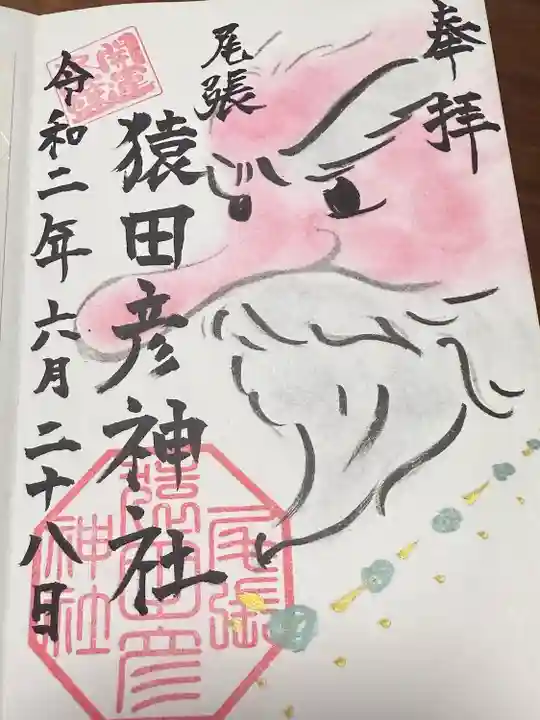 奉拝
尾張
猿田彦神社
令和二年六月二十八日
開運
尾張
猿田彦
神社